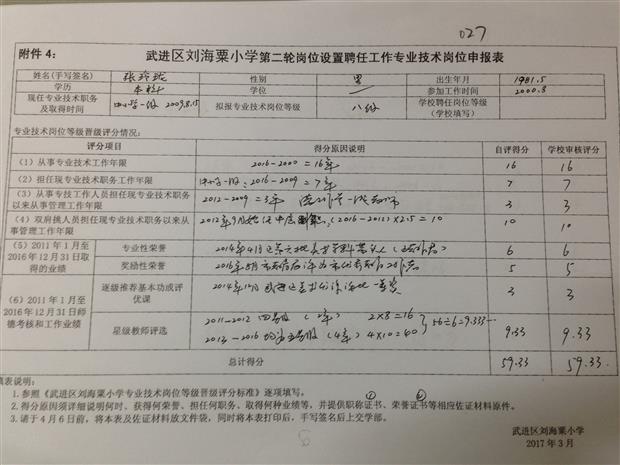 027
附件 4：
武进区刘海粟小学第二轮岗位设置聘任工作专业技术岗位申报表
姓名(手写签名) 张玲珑 性别 男 出生年月 1981.5
学历 本科 学位 / 参加工作时间 2000.8
现任专业技术职务及取得时间 中小学一级 2009.8.15 拟报专业技术岗位等级 八级 学校聘任岗位等级（学校填写）
专业技术岗位等级晋级评分情况：
评分项目 得分原因说明 自评得分 学校审核评分
（1）从事专业技术工作年限 2016-2000=16年 16 16
（2）担任现专业技术职务工作年限 中小学一级：2016-2009=7年 7 7
（3）从事专技工作人员担任现专业技术职务以来从事管理工作年限 2012-2009=3年 3 3
（4）双肩挑人员担任现专业技术职务以来从事管理工作年限 2012年9月 (2016-2012)×2.5=10 10 10
（5）2011 年 1 月至 2016 年 12 月 31 日取得的业绩
专业性荣誉 2014年4月 6 6
奖励性荣誉 2016年5月 5 5
（6）2011 年 1 月至 2016 年 12 月 31 日师德考核和工作业绩
逐级推荐基本功或评优课 2014年12月 一等奖 3 3
星级教师评选 2011-2012 四星级（2年） 2×8=16
2013-2016 五星级（4年）4×10=40 56÷6=9.333… 9.33 9.33
总计得分 59.33 59.33
填表说明：
1. 参照《武进区刘海粟小学专业技术岗位等级晋级评分标准》逐项填写。
2. 得分原因须详细说明何时、获得何荣誉、担任何职务、取得何种业绩等，并提供职称证书、荣誉证书等相应佐证材料原件。
3. 请于 4 月 6 日前，将本表及佐证材料放文件袋，同时将本表打印后，手写签名后上交学部。
武进区刘海粟小学
2017 年 3 月